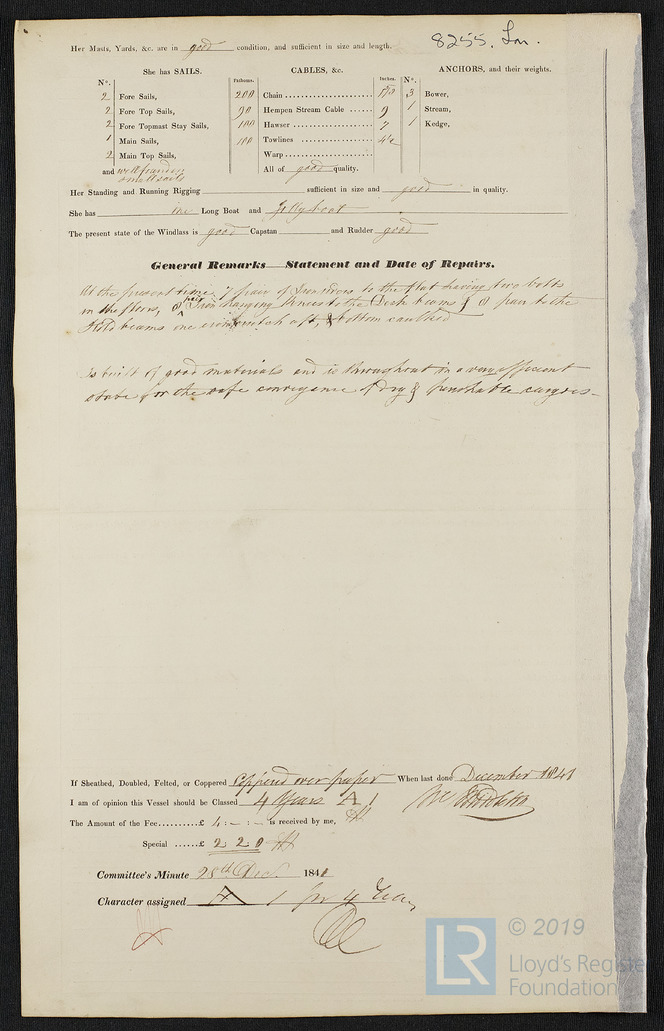 8255. Lon.
Her Masts, Yards, &c. are in good condition, and sufficient in size and length.
She has SAILS.
CABLES, &c.
ANCHORS, and their weights.
N°.
Fathoms.
Inches.
N°.
2 Fore Sails,
200 Chain
3 Bower,
2 Fore Top Sails,
90 Hempen Stream Cable 9
1 Stream,
2 Fore Topmast Stay Sails,
100 Hawser 7
1 Kedge,
1 Main Sails,
100 Towlines
2 Main Top Sails,
Warp
and
All of good quality.
Her Standing and Running Rigging sufficient in size and good in quality.
She has one Long Boat and Jollyboat
The present state of the Windlass is good Capstan and Rudder good
General Remarks Statement and Date of Repairs.
At the present time 7 pair of Iron riders to the flat having two bolts
in the floors, 8 pair Iron hanging knees to the Deck beams & 8 pair to the
Hold beams one iron crutch aft, & bottom caulked
Is built of good materials and is throughout in a very efficient
state for the safe conveyance of dry & perishable cargoes
If Sheathed, Doubled, Felted, or Coppered Coppered over paper When last done December 1841
I am of opinion this Vessel should be Classed 4 Years A 1
The Amount of the Fee £ 4:-:- is received by me,
Special £ 2 2 0
Committee's Minute 28th Decr. 1841
Character assigned A 1 for 4 Years
LR
© 2019
Lloyd's Register
Foundation